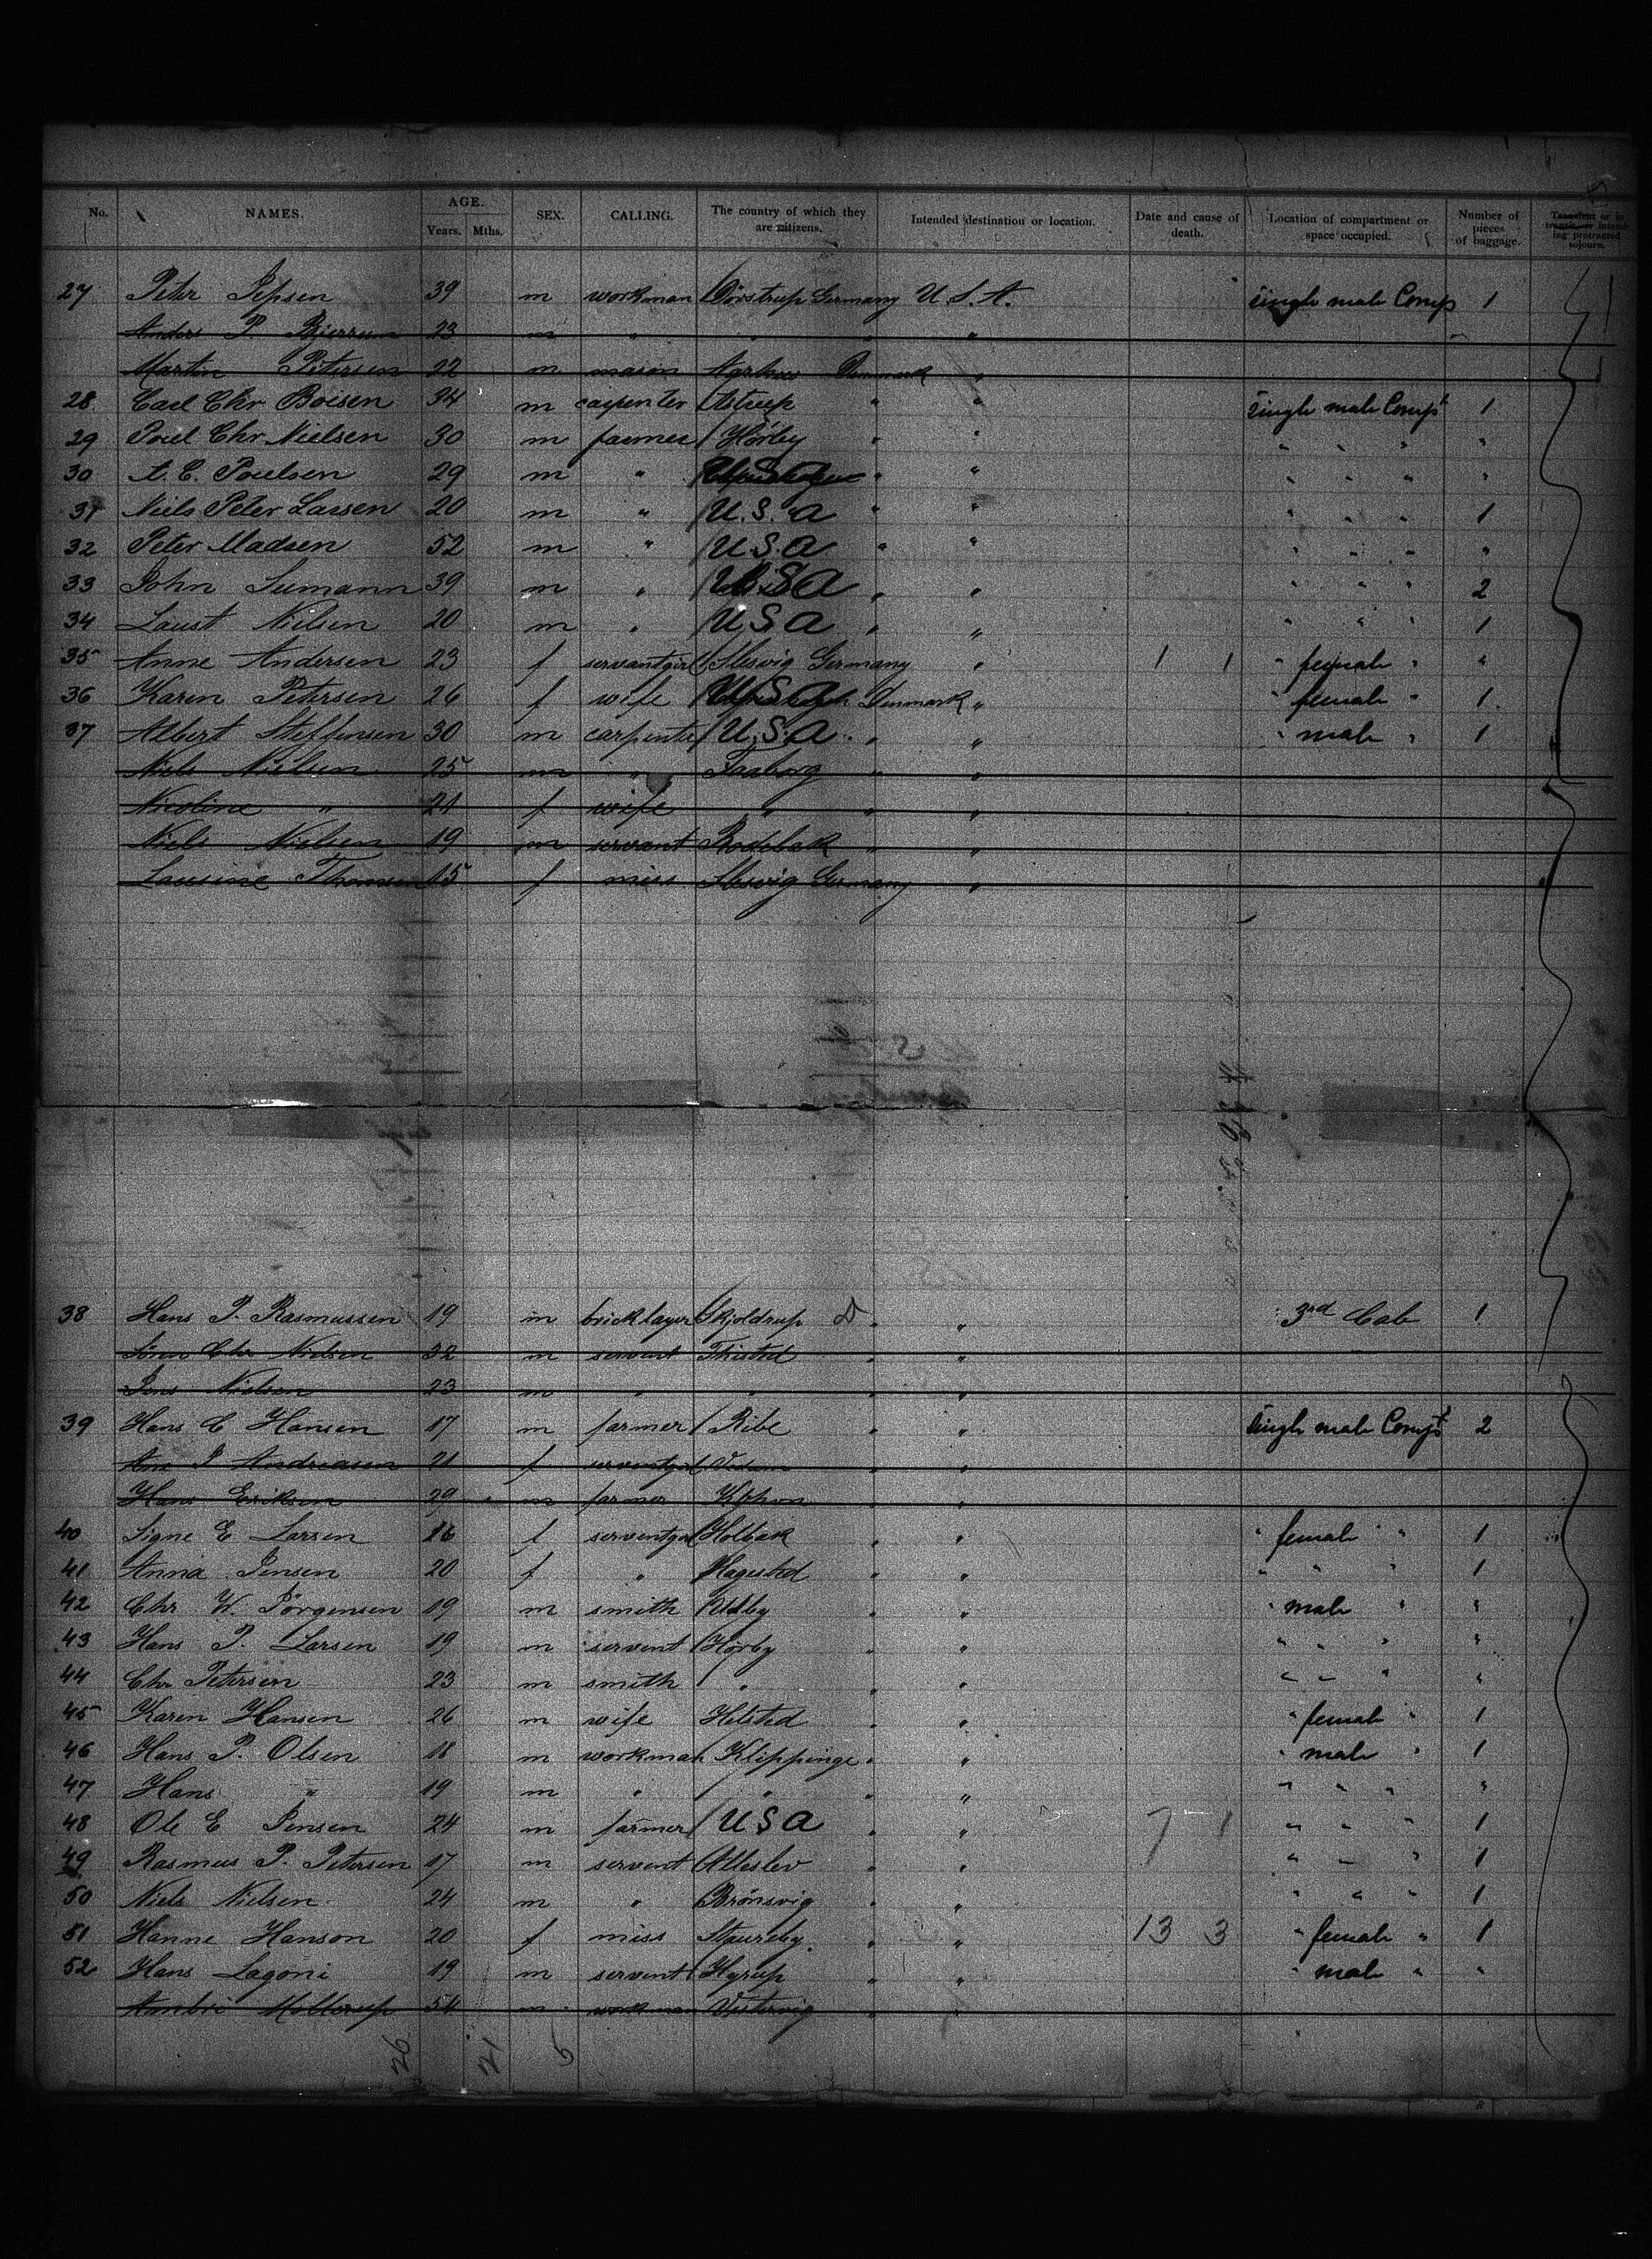 No. NAMES. AGE. Years. Mths. SEX. CALLING. The country of which they are citizens. Intended destination or location. Date and cause of death. Location of compartment or space occupied. Number of pieces of baggage. Transient or in transit, or intending protracted sojourn.
27 Peter Jepsen 39 m workman Germany U.S.A. Single male Comp 1
Anders P. Bjerrum 23 m " " " "
Martin Petersen 22 m mason Aarhus Denmark "
28 Carl Chr Boisen 34 m carpenter Astrup " " Single male Compt 1
29 Poul Chr Nielsen 30 m farmer Hörby " " " " " "
30 A. C. Poulsen 29 m " U.S.a " " " " " "
31 Niels Peter Lassen 20 m " U.S.a " " " " " 1
32 Peter Madsen 52 m " U.S.a " " " " " "
33 John Seemann 39 m " U.S.a " " " " " 2
34 Laust Nielsen 20 m " U.S.a " " " " " 1
35 Anne Andersen 23 f servantgirl Slesvig Germany " 1 1 " female " "
36 Karen Petersen 26 f wife U.S.a Denmark " " female " 1
37 Albert Steffensen 30 m carpenter U.S.a " " " male " 1
Niels Nielsen 25 m " Faaborg " "
Nicoline " 21 f wife " " "
Niels Nielsen 19 m servant Rodebak " "
Laurine Thomsen 15 f miss Slesvig Germany "
38 Hans P. Rasmussen 19 m bricklayer Skjoldrup D " " 3rd Cab 1
Sören Chr Nielsen 32 m servent Thisted " "
Jens Nielsen 23 m " " " "
39 Hans C Hansen 17 m farmer Ribe " " Single male Compt 2
Ane P Andreasen 21 f serventgirl " "
Hans Eriksen 29 m farmer Kbhvn " "
40 Signe E Larsen 16 f serventgirl Holbak " " " female " 1
41 Anna Jensen 20 f " Hagested " " " " " 1
42 Chr. W. Jörgensen 19 m smith Udby " " " male " "
43 Hans P. Larsen 19 m servent Hörby " " " " " "
44 Chr Petersen 23 m smith " " " " " " "
45 Karen Hansen 26 m wife Helsted " " " female " 1
46 Hans P. Olsen 18 m workman Klippinge " " " male " 1
47 Hans " 19 m " " " " " " " "
48 Ole E Jensen 24 m farmer U S a " " 7 1 " " " 1
49 Rasmus P. Petersen 17 m servent Alleslev " " " " " 1
50 Niels Nielsen 24 m " Brönsvig " " " " " 1
51 Hanne Hanson 20 f miss Staureby " " 13 3 " female " 1
52 Hans Lagoni 19 m servent Hyrup " " " male " "
Mollerup 54 m workman Vestervig " "
26 21 5